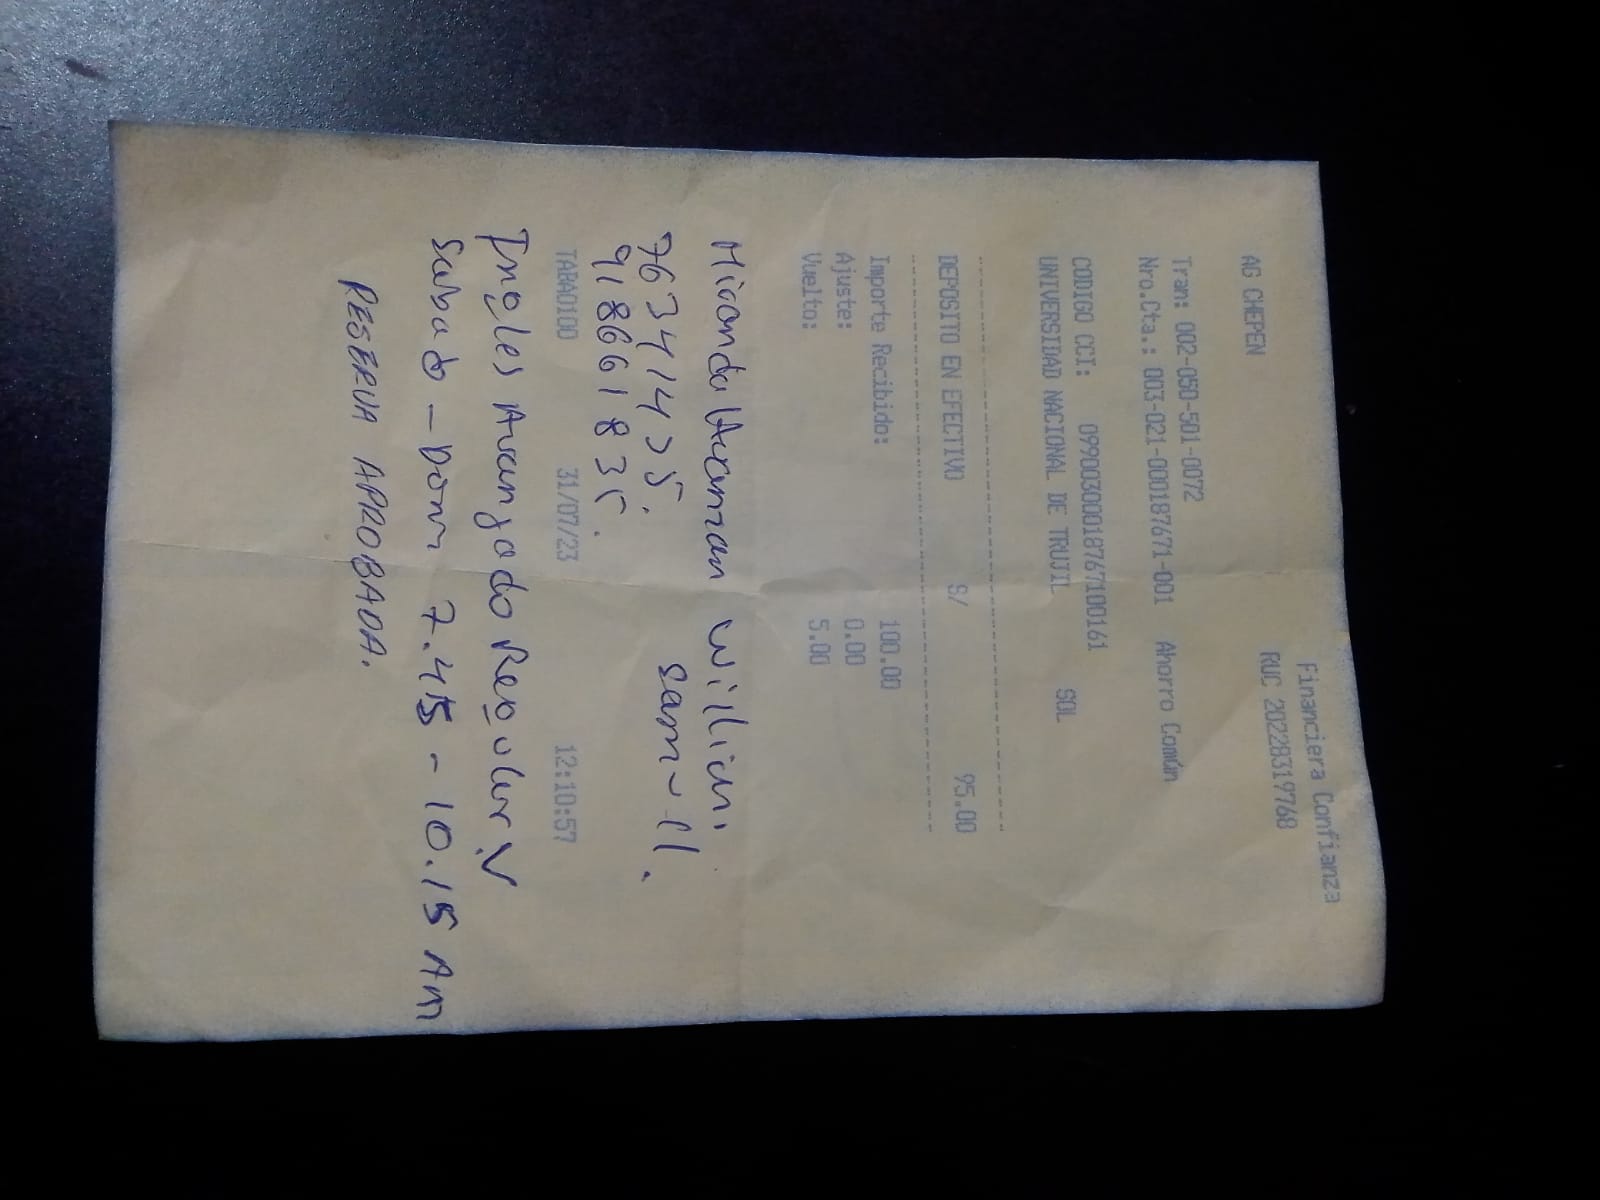 Financiera Confianza
AG CHEPEN RUC 20228319768
Tran: 002-050-501-0072
Nro.Cta.: 003-021-000187671-001 Ahorro Común
CODIGO CCI: 09900300018767100161
UNIVERSIDAD NACIONAL DE TRUJIL SOL
DEPOSITO EN EFECTIVO S/ 95.00
Importe Recibido: 100.00
Ajuste: 0.00
Vuelto: 5.00
Miranda Huaman William
76341435. Samuel.
918661835.
TABA0100 31/07/23 12:10:57
Ingles Avanzado Regular V
Sabado - Dom 7.45 - 10.15 AM
RESERVA APROBADA.